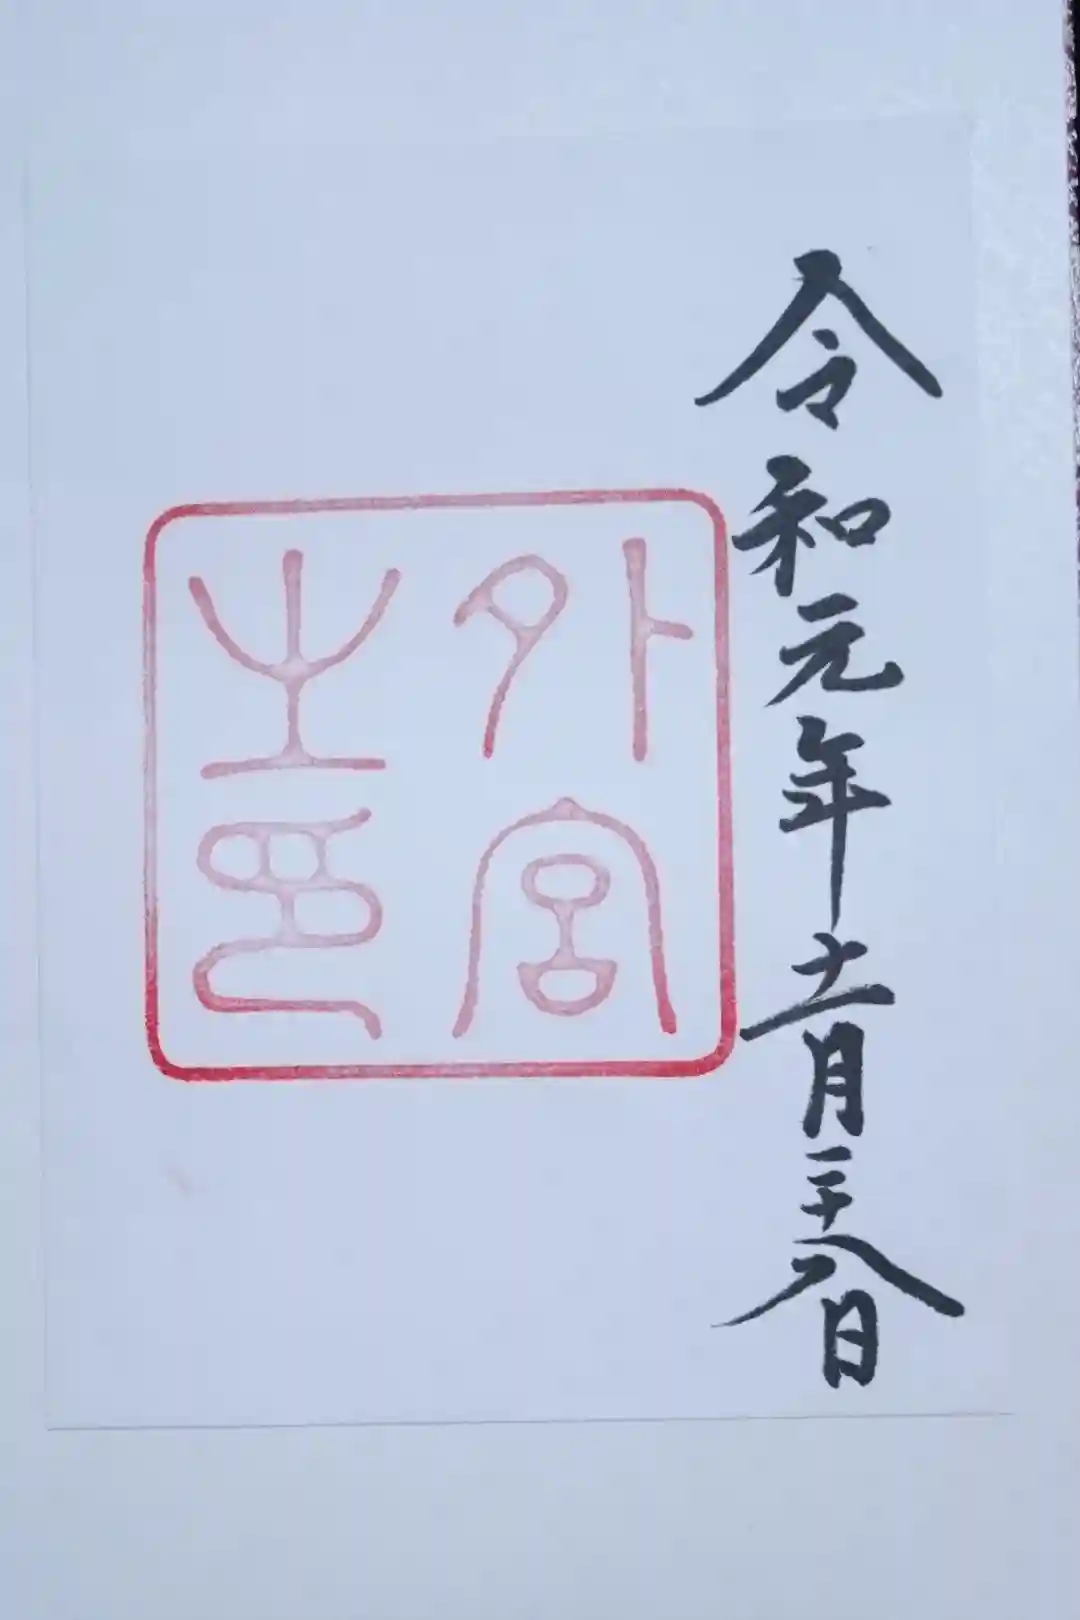 令和元年十一月二十八日
外宮
之印